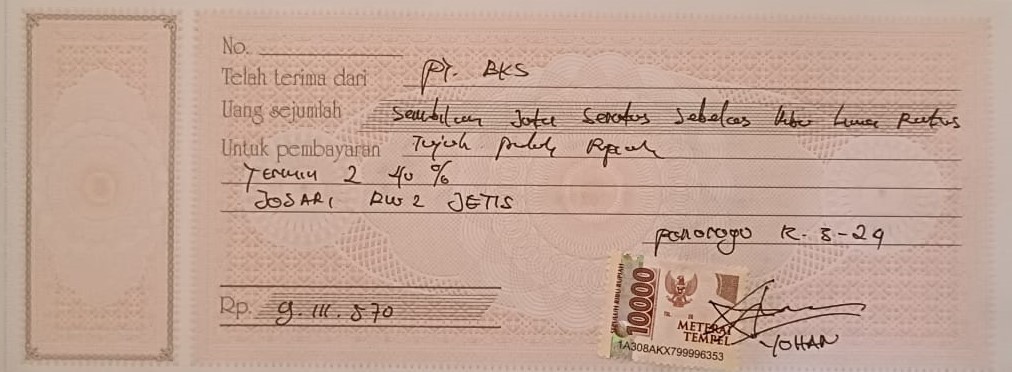 No.
Telah terima dari PT. BKS
Uang sejumlah Sembilan Juta Seratus Sebelas Ribu Lima Ratus
Untuk pembayaran Tujuh puluh Rpiah
TERMIN 2 40 %
JOSARI RW 2 JETIS
ponorogo
Rp. 9.111.570
SEPULUH RIBU RUPIAH
10000
METERAI
TEMPEL
1A308AKX799996353
YOHAN